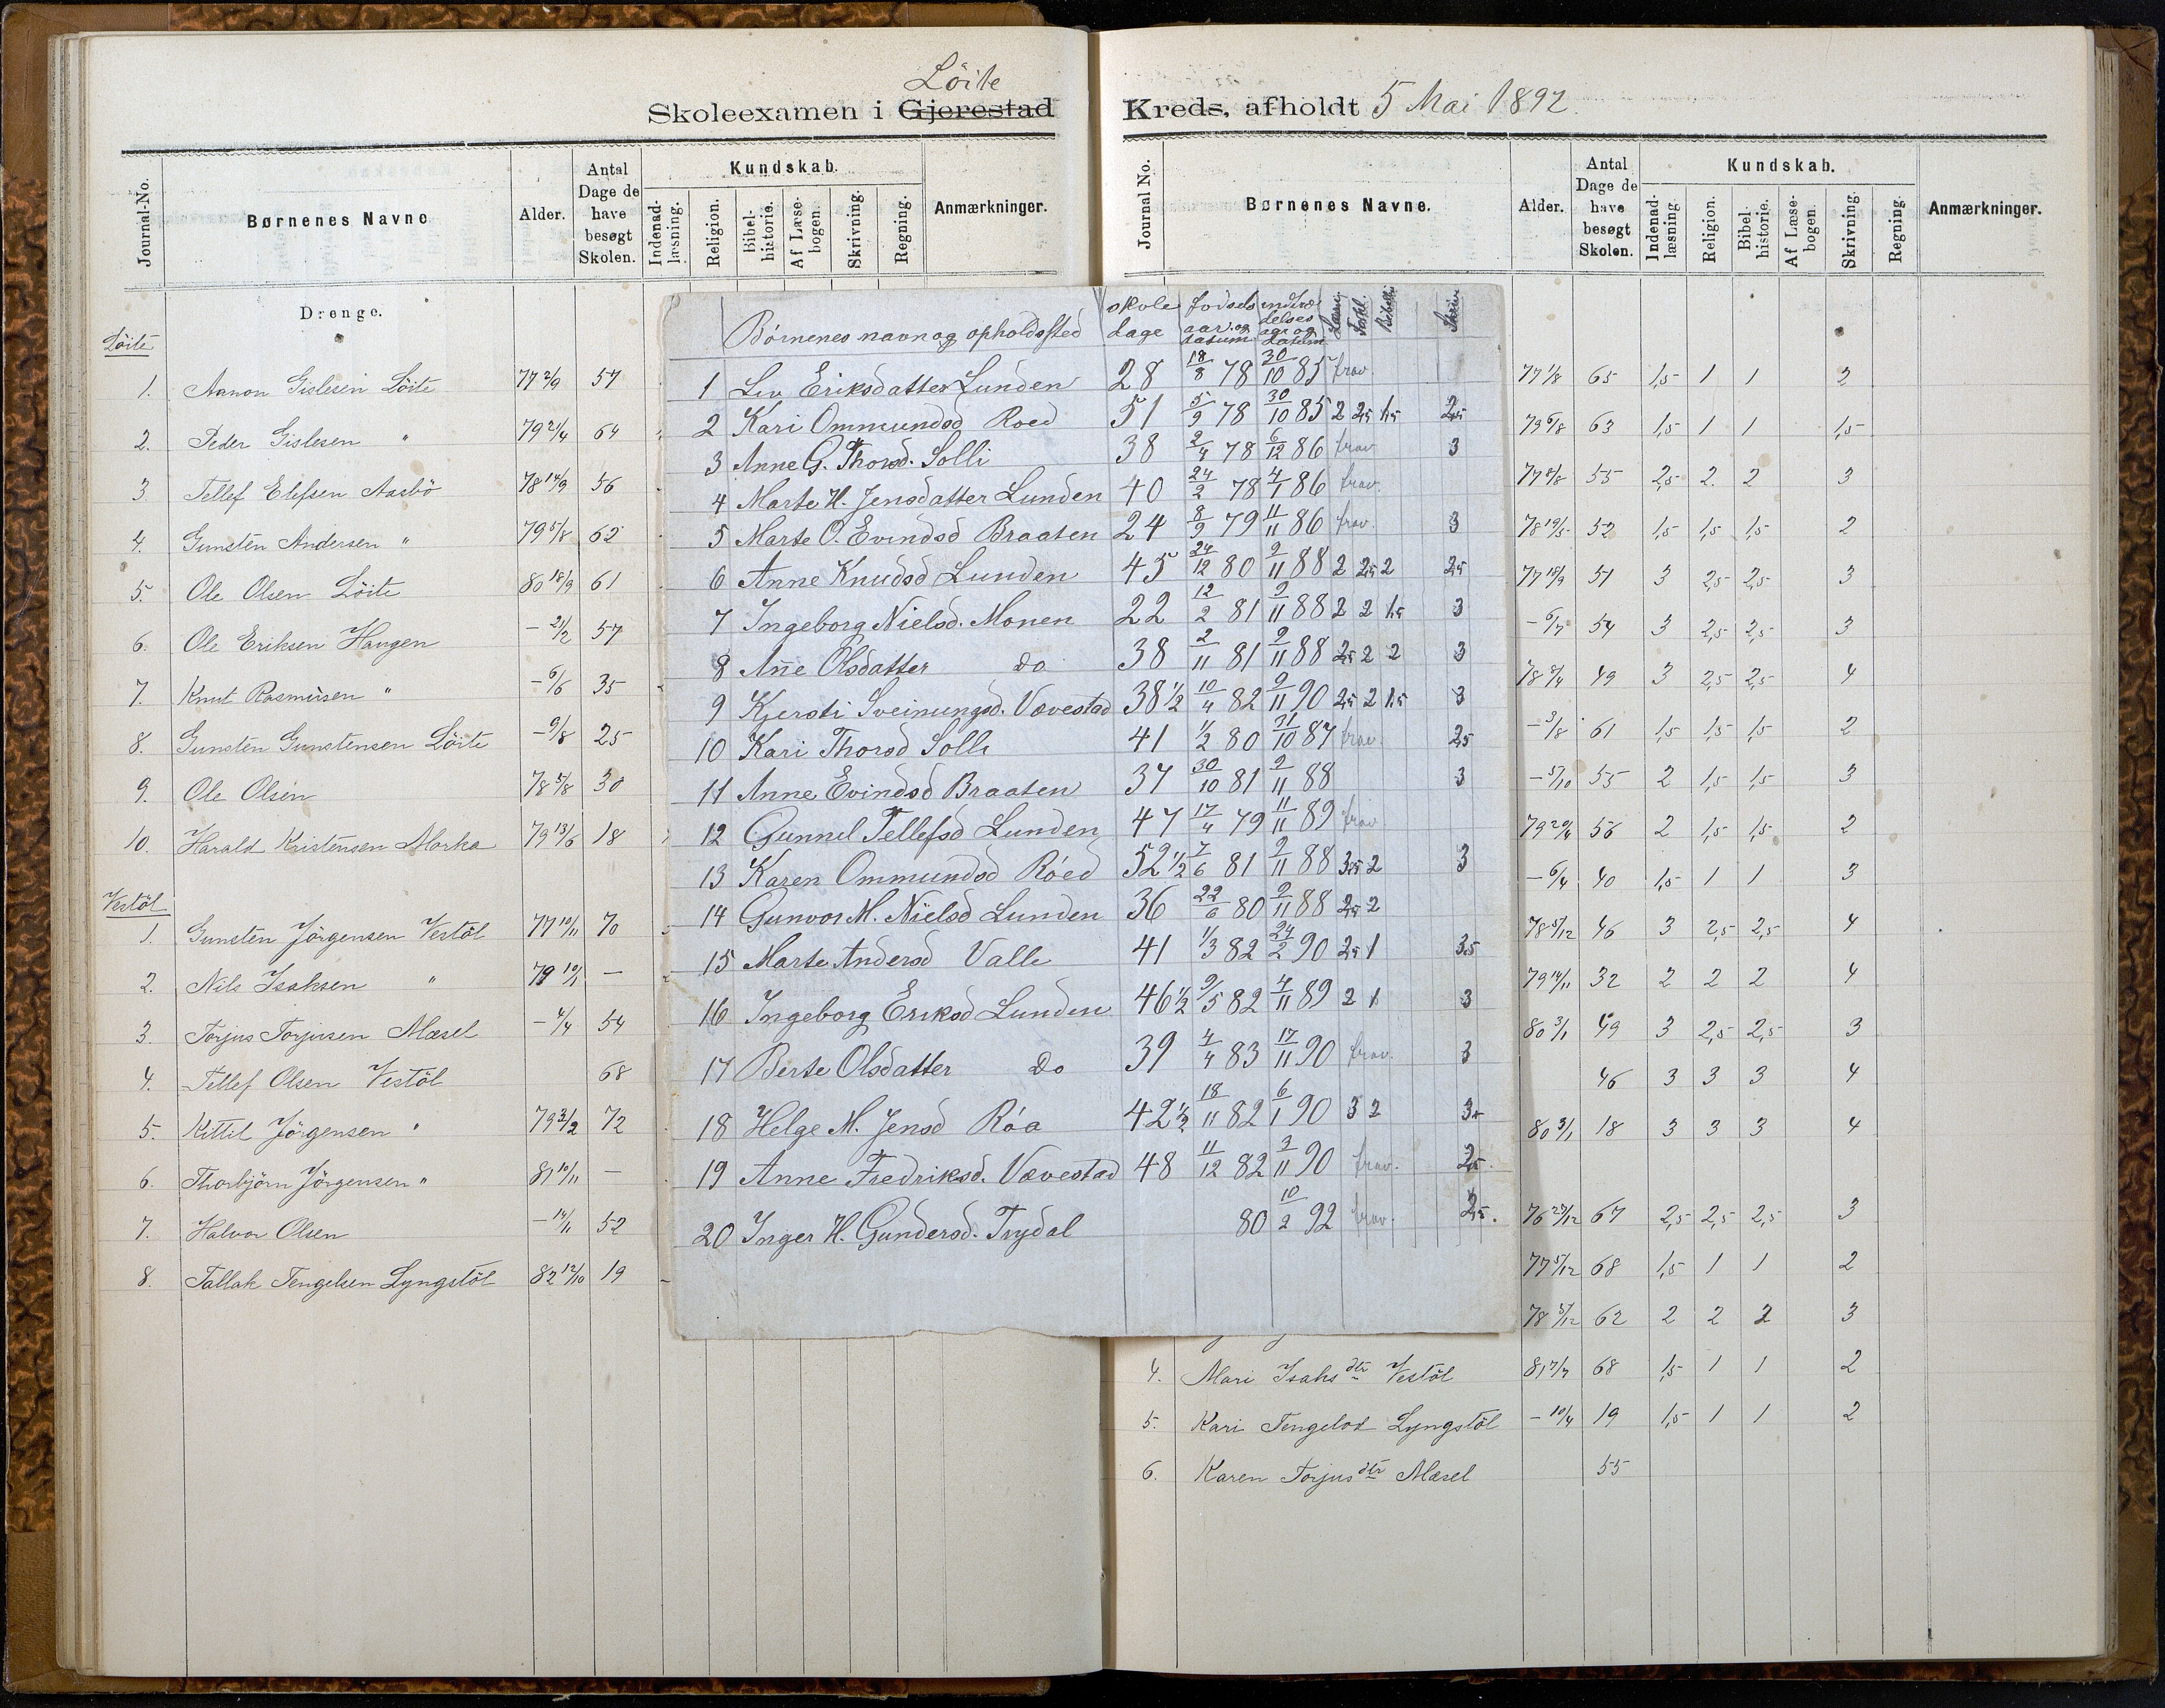 Löite
Skoleexamen i Gjerestad Kreds, afholdt 5 Mai 1892.
Journal-No. Børnenes Navne Alder. Antal Dage de have besøgt Skolen. Kundskab. Indenad-læsning. Religion. Bibel-historie. Af Læse-bogen. Skrivning. Regning. Anmærkninger.
Drenge.
Löite
1. Aanon Gislesen Löite 77 2/9 57
2. Peder Gislesen " 79 21/4 64
3 Tellef Elefsen Aasbö 78 14/9 56
4. Gunsten Andersen " 79 5/8 62
5. Ole Olsen Löite 80 18/9 61
6. Ole Eriksen Haugen - 21/2 57
7. Knut Rasmusen " - 6/6 35
8. Gunsten Gunstensen Löite - 9/8 25
9. Ole Olsen 78 5/8 30
10. Harald Kristensen Morka 79 13/6 18
Vestöl
1. Gunsten Jörgensen Vestöl 77 10/11 70
2. Nils Isaksen " 79 10/1 —
3. Torjus Torjusen Mæsel - 4/4 54
4. Tellef Olsen Vestöl 68
5. Kittil Jörgensen " 79 3/2 72
6. Thorbjörn Jörgensen " 81 10/11 —
7. Halvor Olsen - 14/11 52
8. Tallak Tengelsen Lyngstöl 82 12/10 19
Børnenes navn og opholdssted skole dage fødsels aar og datum indtræ delses aar og datum Læsn. Forkl. Bibelhi Skriv
1 Liv Eriksdatter Lunden 28 18/8 78 30/10 85 frav.
2 Kari Ommundsd Roed 51 5/9 78 30/10 85 2 2,5 1,5 2,5
3 Anne G. Thorsd. Solli 38 2/4 78 6/12 86 frav 3
4 Marte H. Jensdatter Lunden 40 24/2 78 4/1 86 frav.
5 Marte O. Evindsd Braaten 24 8/9 79 11/11 86 frav. 3
6 Anne Knudsd Lunden 45 24/12 80 9/11 88 2 2,5 2 2,5
7 Ingeborg Nielsd. Monen 22 12/2 81 9/11 88 2 2 1,5 3
8 Añe Olsdatter do 38 2/11 81 9/11 88 2,5 2 2 3
9 Kjersti Sveinungsd. Vævestad 38 1/2 10/4 82 9/11 90 2,5 2 1,5 3
10 Kari Thorsd Solli 41 1/2 80 31/10 87 frav. 2,5
11 Anne Evindsd Braaten 37 30/10 81 9/11 88 3
12 Gunnil Tellefsd Lunden 47 17/4 79 11/11 89 frav
13 Karen Ommundsd Róed 52 1/2 7/6 81 9/11 88 3,5 2 3
14 Gunvor M. Nielsd Lunden 36 22/6 80 9/11 88 2,5 2
15 Marte Andersd Valle 41 1/3 82 24/2 90 2,5 1 3.5
16 Ingeborg Eriksd Lunden 46 1/2 9/5 82 4/11 89 2 1 3
17 Berte Olsdatter Do 39 4/4 83 17/11 90 frav. 3
18 Helge M. Jensd Róa 42 1/2 18/11 82 6/1 90 3 2 3,5
19 Anne Fredriksd. Vævestad 48 11/12 82 3/11 90 frav. 2,5.
20 Inger H. Gundersd. Trydal 80 10/2 92 frav. 2,5.
Journal No. Børnenes Navne. Alder. Antal Dage de have besøgt Skolen. Kundskab. Indenad-læsning Religion. Bibel-historie. Af Læse-bogen. Skrivning. Regning. Anmærkninger.
77 1/8 65 1,5 1 1 2
79 6/8 63 1,5 1 1 1,5
77 8/8 55 2,5 2. 2 3
78 19/5 52 1,5 1,5 1,5 2
77 18/9 51 3 2,5 2,5 3
- 6/7 54 3 2,5 2,5 3
78 8/4 49 3 2,5 2,5 4
- 3/8 61 1,5 1,5 1,5 2
- 5/10 55 2 1,5 1,5 3
79 20/4 56 2 1,5 1,5 2
- 6/4 40 1,5 1 1 3
78 5/12 46 3 2,5 2,5 4
79 14/11 32 2 2 2 4
80 3/1 49 3 2,5 2,5 3
46 3 3 3 4
80 3/1 18 3 3 3 4
76 27/12 67 2,5 2,5 2,5 3
77 5/12 68 1,5 1 1 2
78 5/12 62 2 2 2 3
4. Mari Isaksdtr Vestöl 81 7/7 68 1,5 1 1 2
5. Kari Tengelsd Lyngstöl - 10/4 19 1,5 1 1 2
6. Karen Torjusdtr Mæsel 55